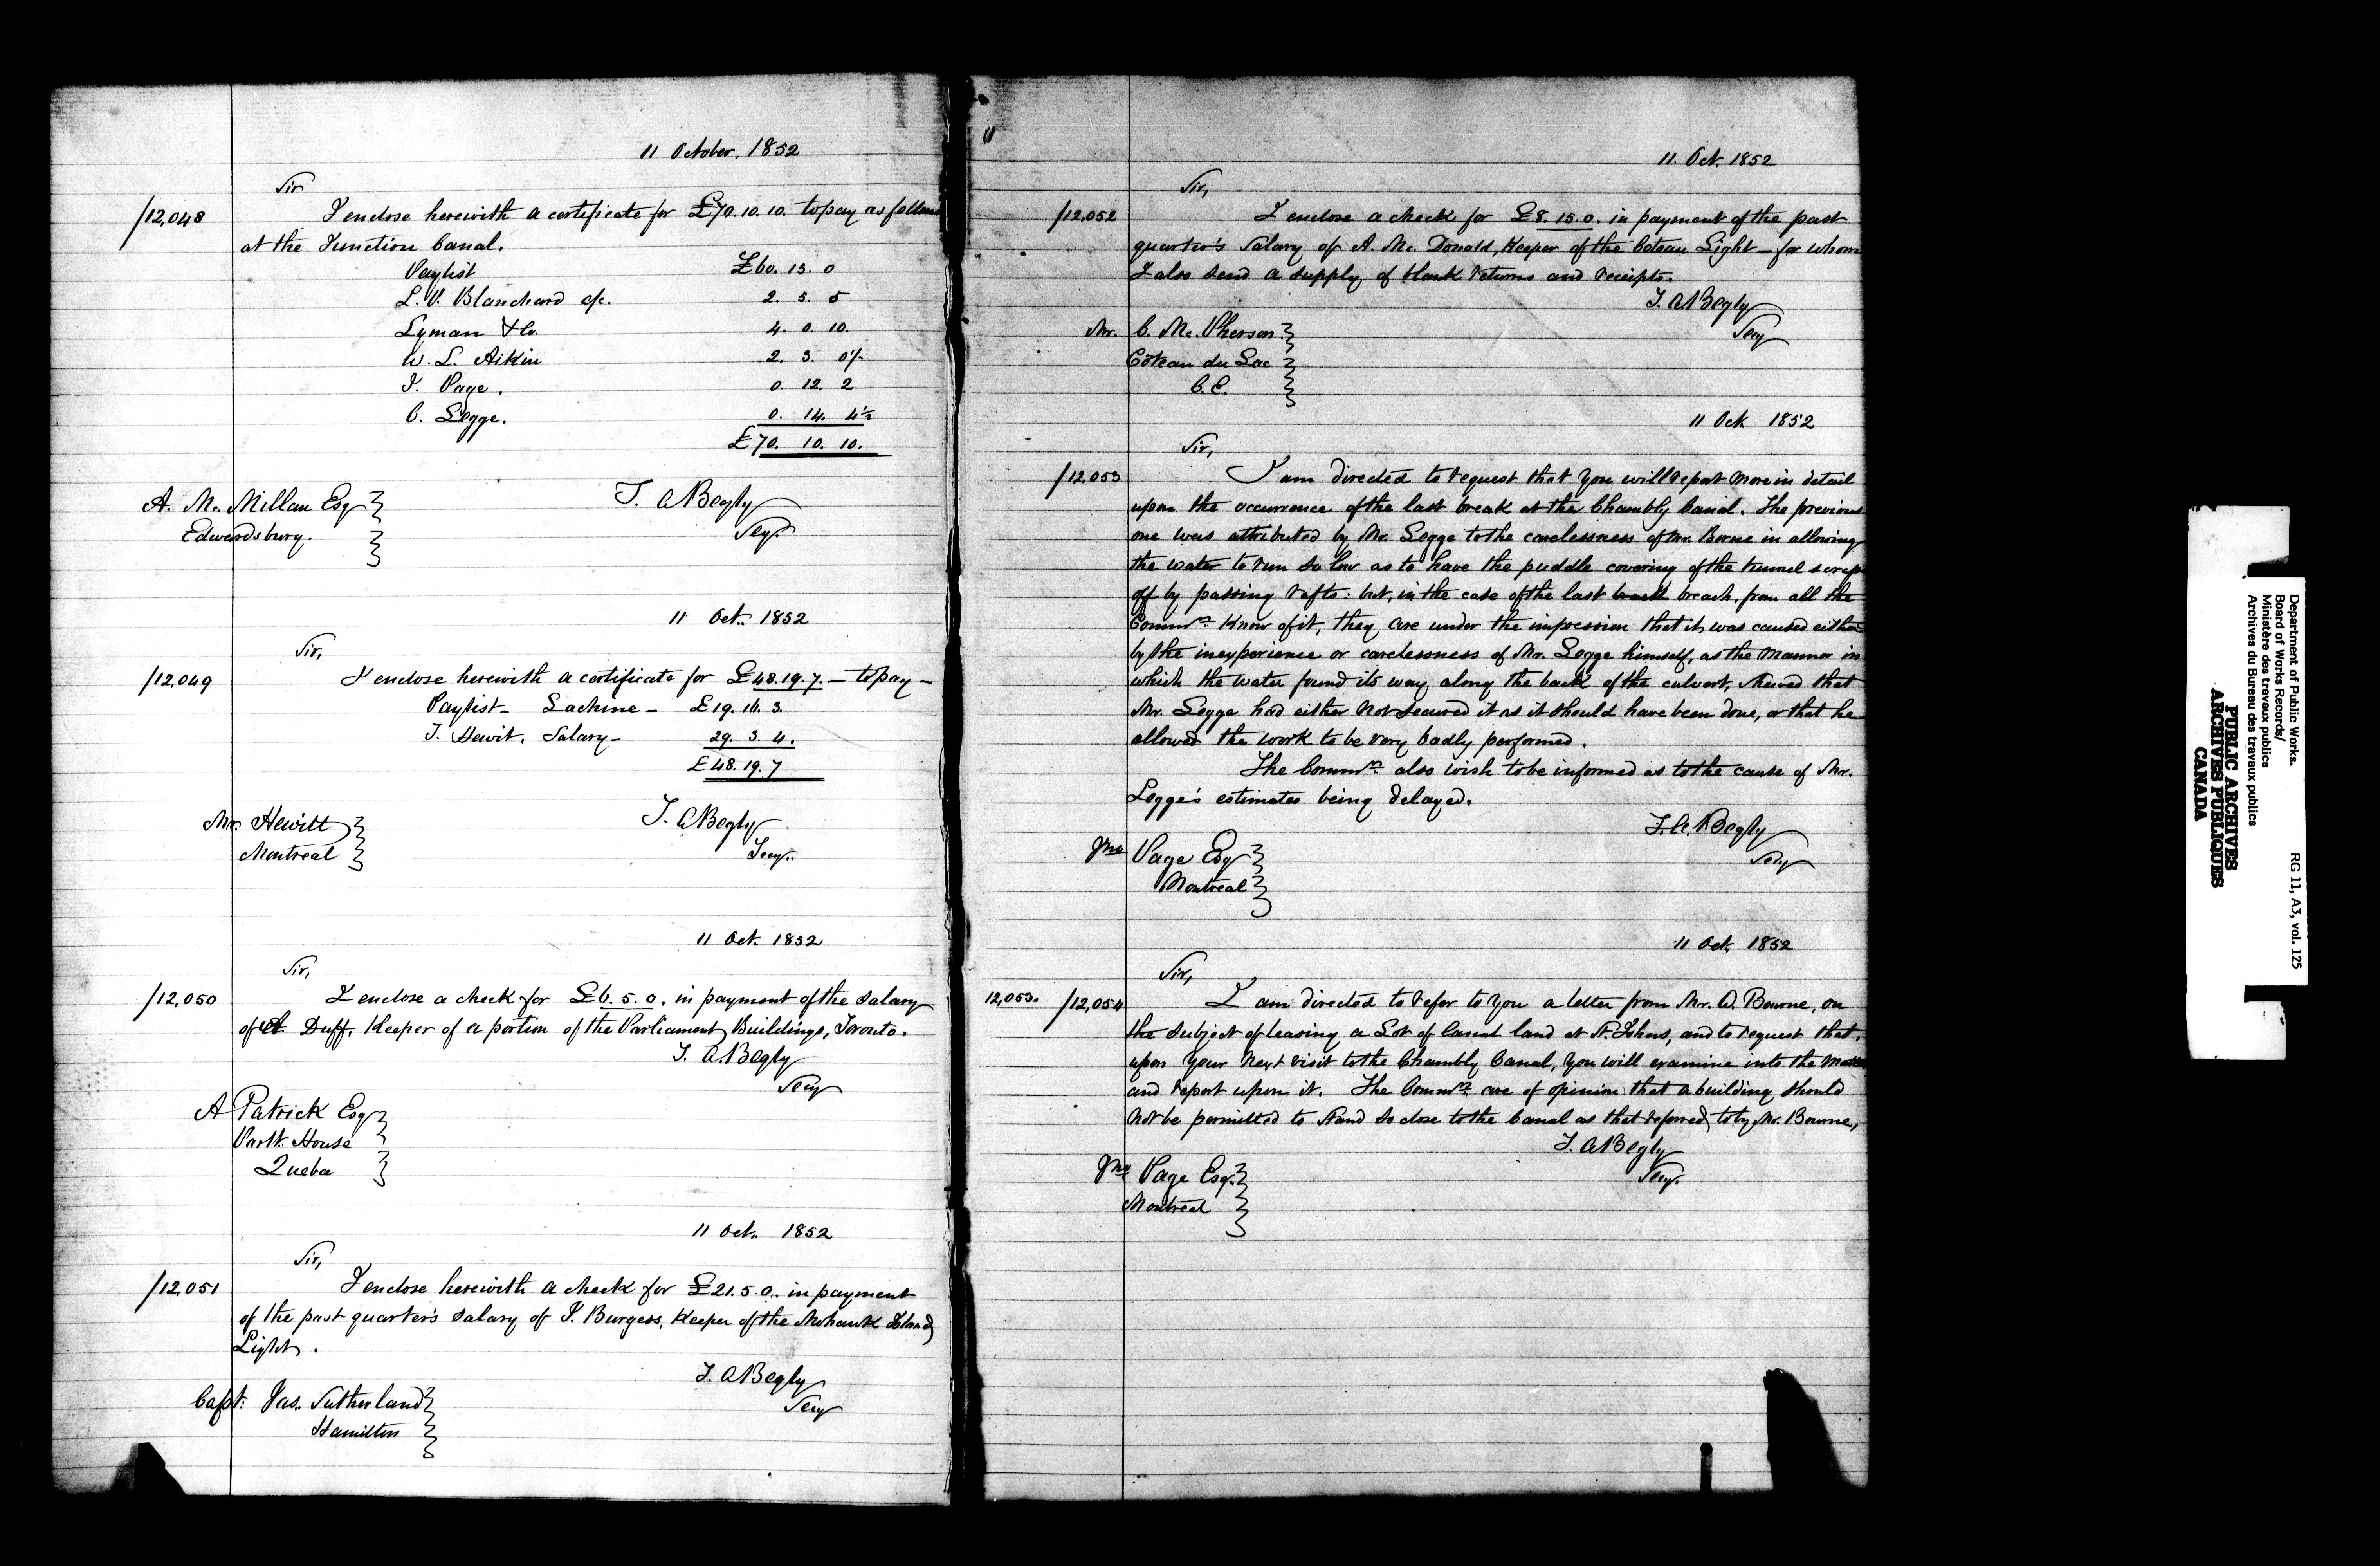 11 October, 1852
Sir
/12,048 I enclose herewith a certificate for £70.10.10. to pay as follows
at the Junction Canal.
Paylist £60. 15. 0
L. V. Blanchard a/c. 2. 5. 5
Lyman & Co. 4. 0. 10.
W. L. Aikin 2. 3. 0½
J. Page. 0. 12. 2
C. Legge. 0. 14. 4½
£70. 10. 10.
A. Mc.Millan Esq
Edwardsburg.
T. A Begly
Secy.
11 Oct. 1852
Sir,
/12,049 I enclose herewith a certificate for £48.19.7. — to pay —
Paylist - Lachine - £19. 16. 3.
J. Hewit, Salary - 29. 3. 4.
£48. 19. 7
Mr. Hewitt
Montreal
T. A Begly
Secy.
11 Oct. 1852
Sir,
/12,050 I enclose a check for £6. 5. 0. in payment of the salary
of A. Duff, Keeper of a portion of the Parliament Buildings, Toronto.
T. A. Begly
Secy
A Patrick Esq
Parlt. House
Quebec
11 Oct. 1852
Sir,
/12,051 I enclose herewith a check for £21. 5. 0. in payment
of the past quarter's salary of P. Burgess, Keeper of the Mohawk Island
Light.
T. A Begly
Secy
Capt. Jas. Sutherland
Hamilton
11. Oct. 1852
Sir,
/12,052 I enclose a check for £8. 15. 0. in payment of the past
quarter's salary of A. Mc. Donald, Keeper of the Coteau Light - for whom
I also send a supply of blank returns and receipts.
T. A Begly
Secy
Mr. C. Mc.Pherson
Côteau du Lac
C.E.
11 Oct. 1852
Sir,
/12,053 I am directed to request that you will report more in detail
upon the occurrence of the last break at the Chambly Canal. The previous
one was attributed by Mr. Legge to the carelessness of Mr. Borne in allowing
the water to run so low as to have the puddle covering of the tunnel scrap
off by passing rafts: but, in the case of the last breach, from all the
Commrs. know of it, they are under the impression that it was caused either
by the inexperience or carelessness of Mr. Legge himself, as the manner in
which the water found its way along the back of the culvert, shewed that
Mr. Legge had either not secured it as it should have been done, or that he
allowed the work to be very badly performed.
The Commrs. also wish to be informed as to the cause of Mr.
Legge's estimates being delayed.
T. A. Begly
Secy
Jno Page Esq
Montreal
11 Oct. 1852
Sir,
12,053. /12,054 I am directed to refer to you a letter from Mr. A. Bourne, on
the subject of leasing a Lot of Canal land at St. Johns, and to request that,
upon your next visit to the Chambly Canal, you will examine into the matter
and report upon it. The Commrs. are of opinion that a building should
not be permitted to stand so close to the Canal as that referred to by Mr. Bourne,
T. A Begly
Secy.
Jno Page Esq.
Montreal
Department of Public Works.
Board of Works Records/
Ministère des travaux publics
Archives du Bureau des travaux publics
RG 11, A3, vol. 125
PUBLIC ARCHIVES
ARCHIVES PUBLIQUES
CANADA